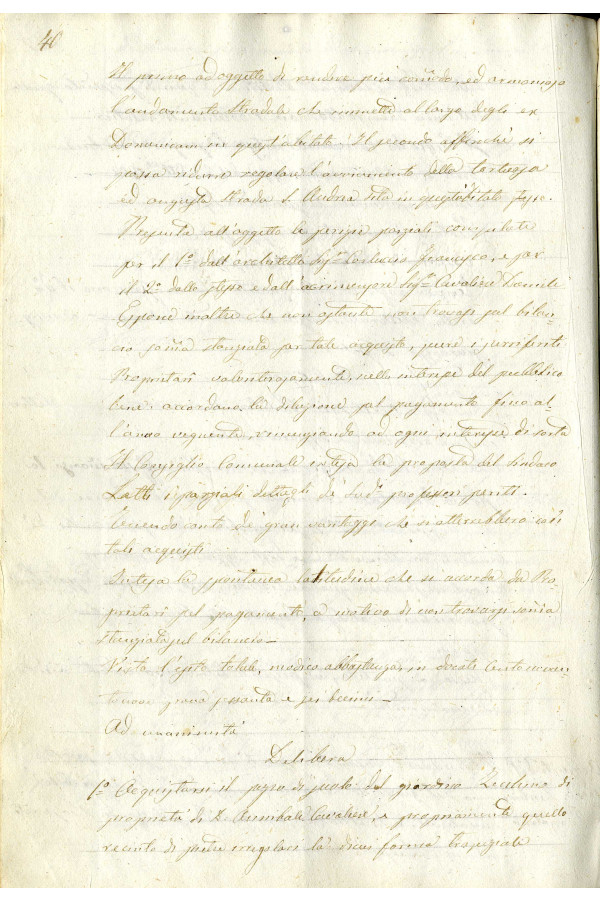 40
Il primo ad oggetto di rendere più comodo, ed armonioso
l'andamento stradale che immette al largo degli ex
Domenicani in quest'abitato. Il secondo affinchè si
possa ridurre regolare l'avviamento della tortuosa
ed angusta strada S. Andrea sita in quest'abitato stesso.
Presenta all'oggetto le perizie parziali compilate
per il 1º dall'architetto Sigr Francesco, e per
il 2º dallo stesso e dall' Sigr Cavaliere
Espone inoltre che non ostante non trovasi sul bilan-
cio somma stanziata per tale acquisto, pure i surriferiti
Proprietari volenterosamente, nello interesse del pubblico
bene accordano la dilazione pel pagamento fino al-
l'anno vegnente, rinunziando ad ogni interesse di sorta
Il Consiglio Comunale intesa la proposta del Sindaco
Letti i parziali dettagli de' sudi professori periti.
Tenendo conto de' gran vantaggi che si otterrebbero con
tali acquisti
Intesa la spontanea latitudine che si accorda da' Pro-
prietari pel pagamento, a motivo di non trovarsi somma
stanziata sul bilancio_
Vista l'este totale, modico abbastanza, in docati cento noven-
tanove grana sessanta e sei decimi_
Ad unanimità
Delibera
1º Acquistarsi il pezzo di suolo del giardino di
proprietà di D. Annibale Cavaliere, e propriamente quello
recinto di pietre irregolari la di cui forma trapeziale